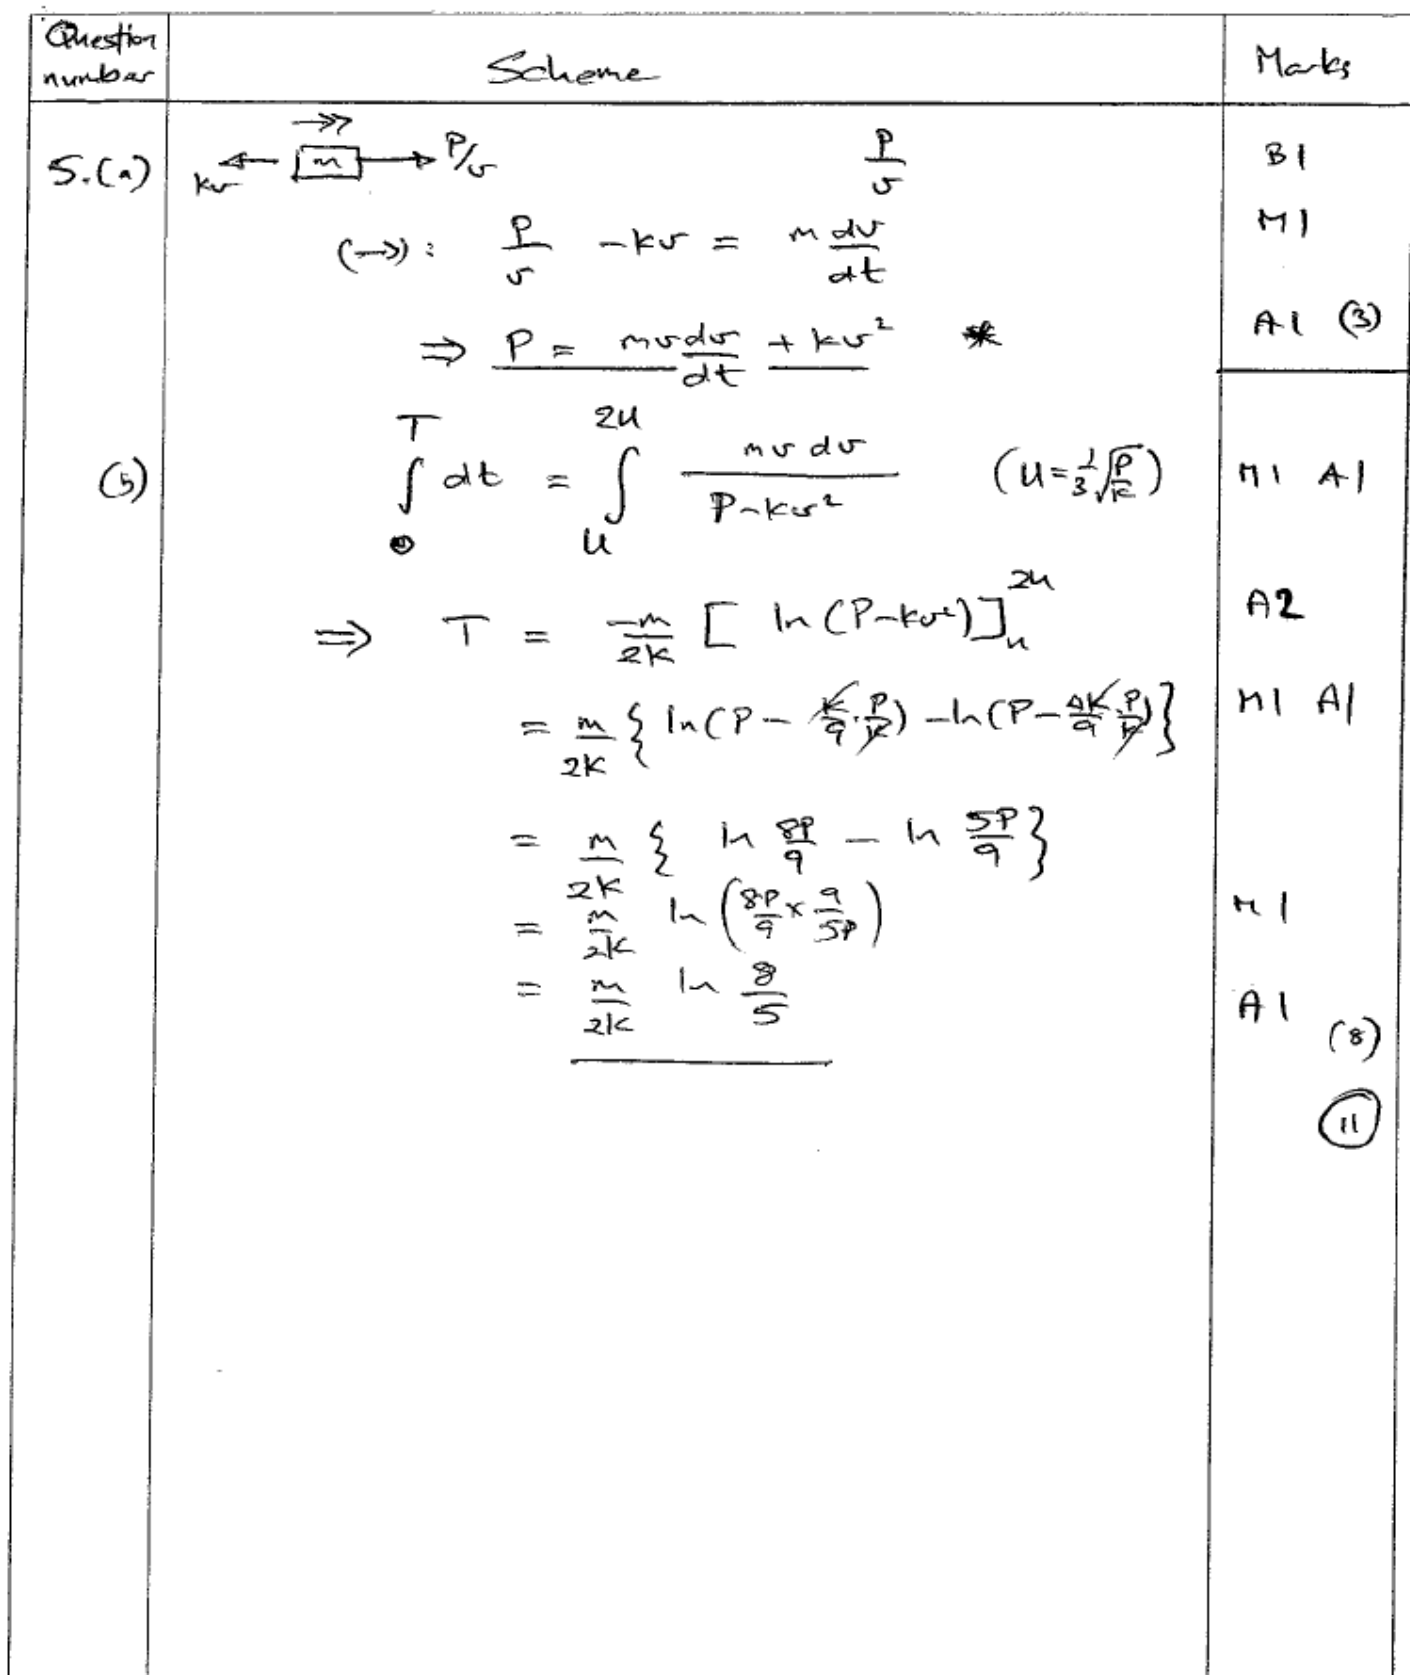 Question number Scheme Marks
5.(a) kv m P/v P/v B1
(→): P/v - kv = m dv/dt M1
⇒ P = mv dv/dt + kv² * A1 (3)
(b) ∫₀ᵀ dt = ∫ᵤ²ᵁ mv dv / P - kv² (U = 1/3 √(P/k)) M1 A1
⇒ T = -m/2k [ ln (P - kv²) ]ᵤ²ᵘ A2
= m/2k { ln(P - k/9 · P/k) - ln(P - 4k/9 · P/k) } M1 A1
= m/2k { ln 8P/9 - ln 5P/9 }
= m/2k ln (8P/9 × 9/5P) M1
= m/2k ln 8/5 A1 (8)
11